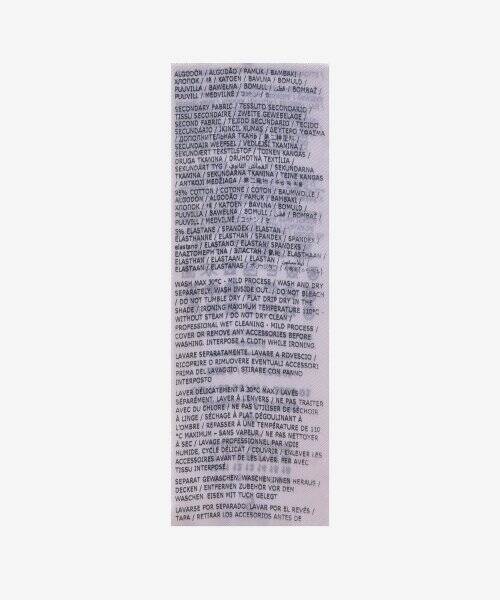 ALGODÓN / ALGODÃO / PAMUK / BAMBAKI /
ХЛОПОК / 棉 / KATOEN / BAVLNA / BOMULD /
PUUVILLA / BAWEŁNA / BOMULL / BOMBAŽ /
PUUVILL / MEDVILNĖ / コットン /
SECONDARY FABRIC / TESSUTO SECONDARIO /
TISSU SECONDAIRE / ZWEITE GEWEBELAGE /
SECOND FABRIC / TEJIDO SECUNDARIO / TECIDO
SECUNDÁRIO / İKİNCİL KUMAŞ / ΔΕΥΤΕΡΟ ΥΦΑΣΜΑ
/ ДОПОЛНИТЕЛЬНАЯ ТКАНЬ /
SECUNDAIR WEEFSEL / VEDLEJŠÍ TKANINA /
SEKUNDÆRT TEKSTILSTOF / TOINEN KANGAS /
DRUGA TKANINA / DRUHOTNÁ TEXTÍLIA /
SEKUNDÄRT TYG / SEKUNDARNA
TKANINA / SEKUNDARNA TKANINA / TEINE KANGAS
/ ANTROJI MEDŽIAGA /
95% COTTON / COTONE / COTON / BAUMWOLLE /
ALGODÓN / ALGODÃO / PAMUK / BAMBAKI /
ХЛОПОК / 棉 / KATOEN / BAVLNA / BOMULD /
PUUVILLA / BAWEŁNA / BOMULL / BOMBAŽ /
PUUVILL / MEDVILNĖ / コットン /
5% ELASTANE / SPANDEX / ELASTAN /
ELASTHANNE / ELASTHAN / SPANDEX /
elastano / ELASTANO / ELASTAN / SPANDEKS /
ΕΛΑΣΤΟΜΕΡΗ ΙΝΑ / ЭЛАСТАН / ELASTHAAN /
ELASTHAN / ELASTAANI / ELASTAN /
ELASTAANI / ELASTANAS /
WASH MAX 30°C - MILD PROCESS / WASH AND DRY
SEPARATELY. WASH INSIDE OUT. / DO NOT BLEACH
/ DO NOT TUMBLE DRY / FLAT DRIP DRY IN THE
SHADE / IRONING MAXIMUM TEMPERATURE 110°C -
WITHOUT STEAM / DO NOT DRY CLEAN /
PROFESSIONAL WET CLEANING - MILD PROCESS /
COVER OR REMOVE ANY ACCESSORIES BEFORE
WASHING. INTERPOSE A CLOTH WHILE IRONING.
LAVARE SEPARATAMENTE. LAVARE A ROVESCIO /
RICOPRIRE O RIMUOVERE EVENTUALI ACCESSORI
PRIMA DEL LAVAGGIO. STIRARE CON PANNO
INTERPOSTO
LAVER DÉLICATEMENT À 30°C MAX / LAVER
SÉPARÉMENT. LAVER À L'ENVERS / NE PAS TRAITER
AVEC DU CHLORE / NE PAS UTILISER DE SÉCHOIR
À LINGE / SÉCHAGE À PLAT DÉGOULINANT À
L'OMBRE / REPASSER À UNE TEMPÉRATURE DE 110
°C MAXIMUM – SANS VAPEUR / NE PAS NETTOYER
À SEC / LAVAGE PROFESSIONNEL PAR VOIE
HUMIDE, CYCLE DÉLICAT / COUVRIR / ENLEVER LES
ACCESSOIRES AVANT DE LES LAVER. FER AVEC
TISSU INTERPOSÉ.
SEPARAT GEWASCHEN. WASCHEN INNEN HERAUS /
DECKEN / ENTFERNEN ZUBEHÖR VOR DEM
WASCHEN. EISEN MIT TUCH GELEGT
LAVARSE POR SEPARADO. LAVAR POR EL REVÉS /
TAPA / RETIRAR LOS ACCESORIOS ANTES DE